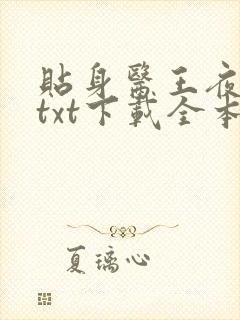 貼身醫王夜
txt下載全本
夏璃心